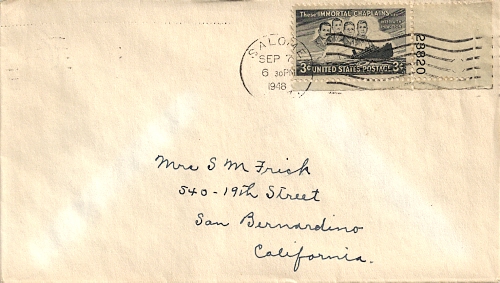 These IMMORTAL CHAPLAINS...
INTERFAITH
IN ACTION
3¢ UNITED STATES POSTAGE 3¢
23820
SALOME
SEP
6 30PM
1948
Mrs S M Frick
540-19th Street
San Bernardino
California.